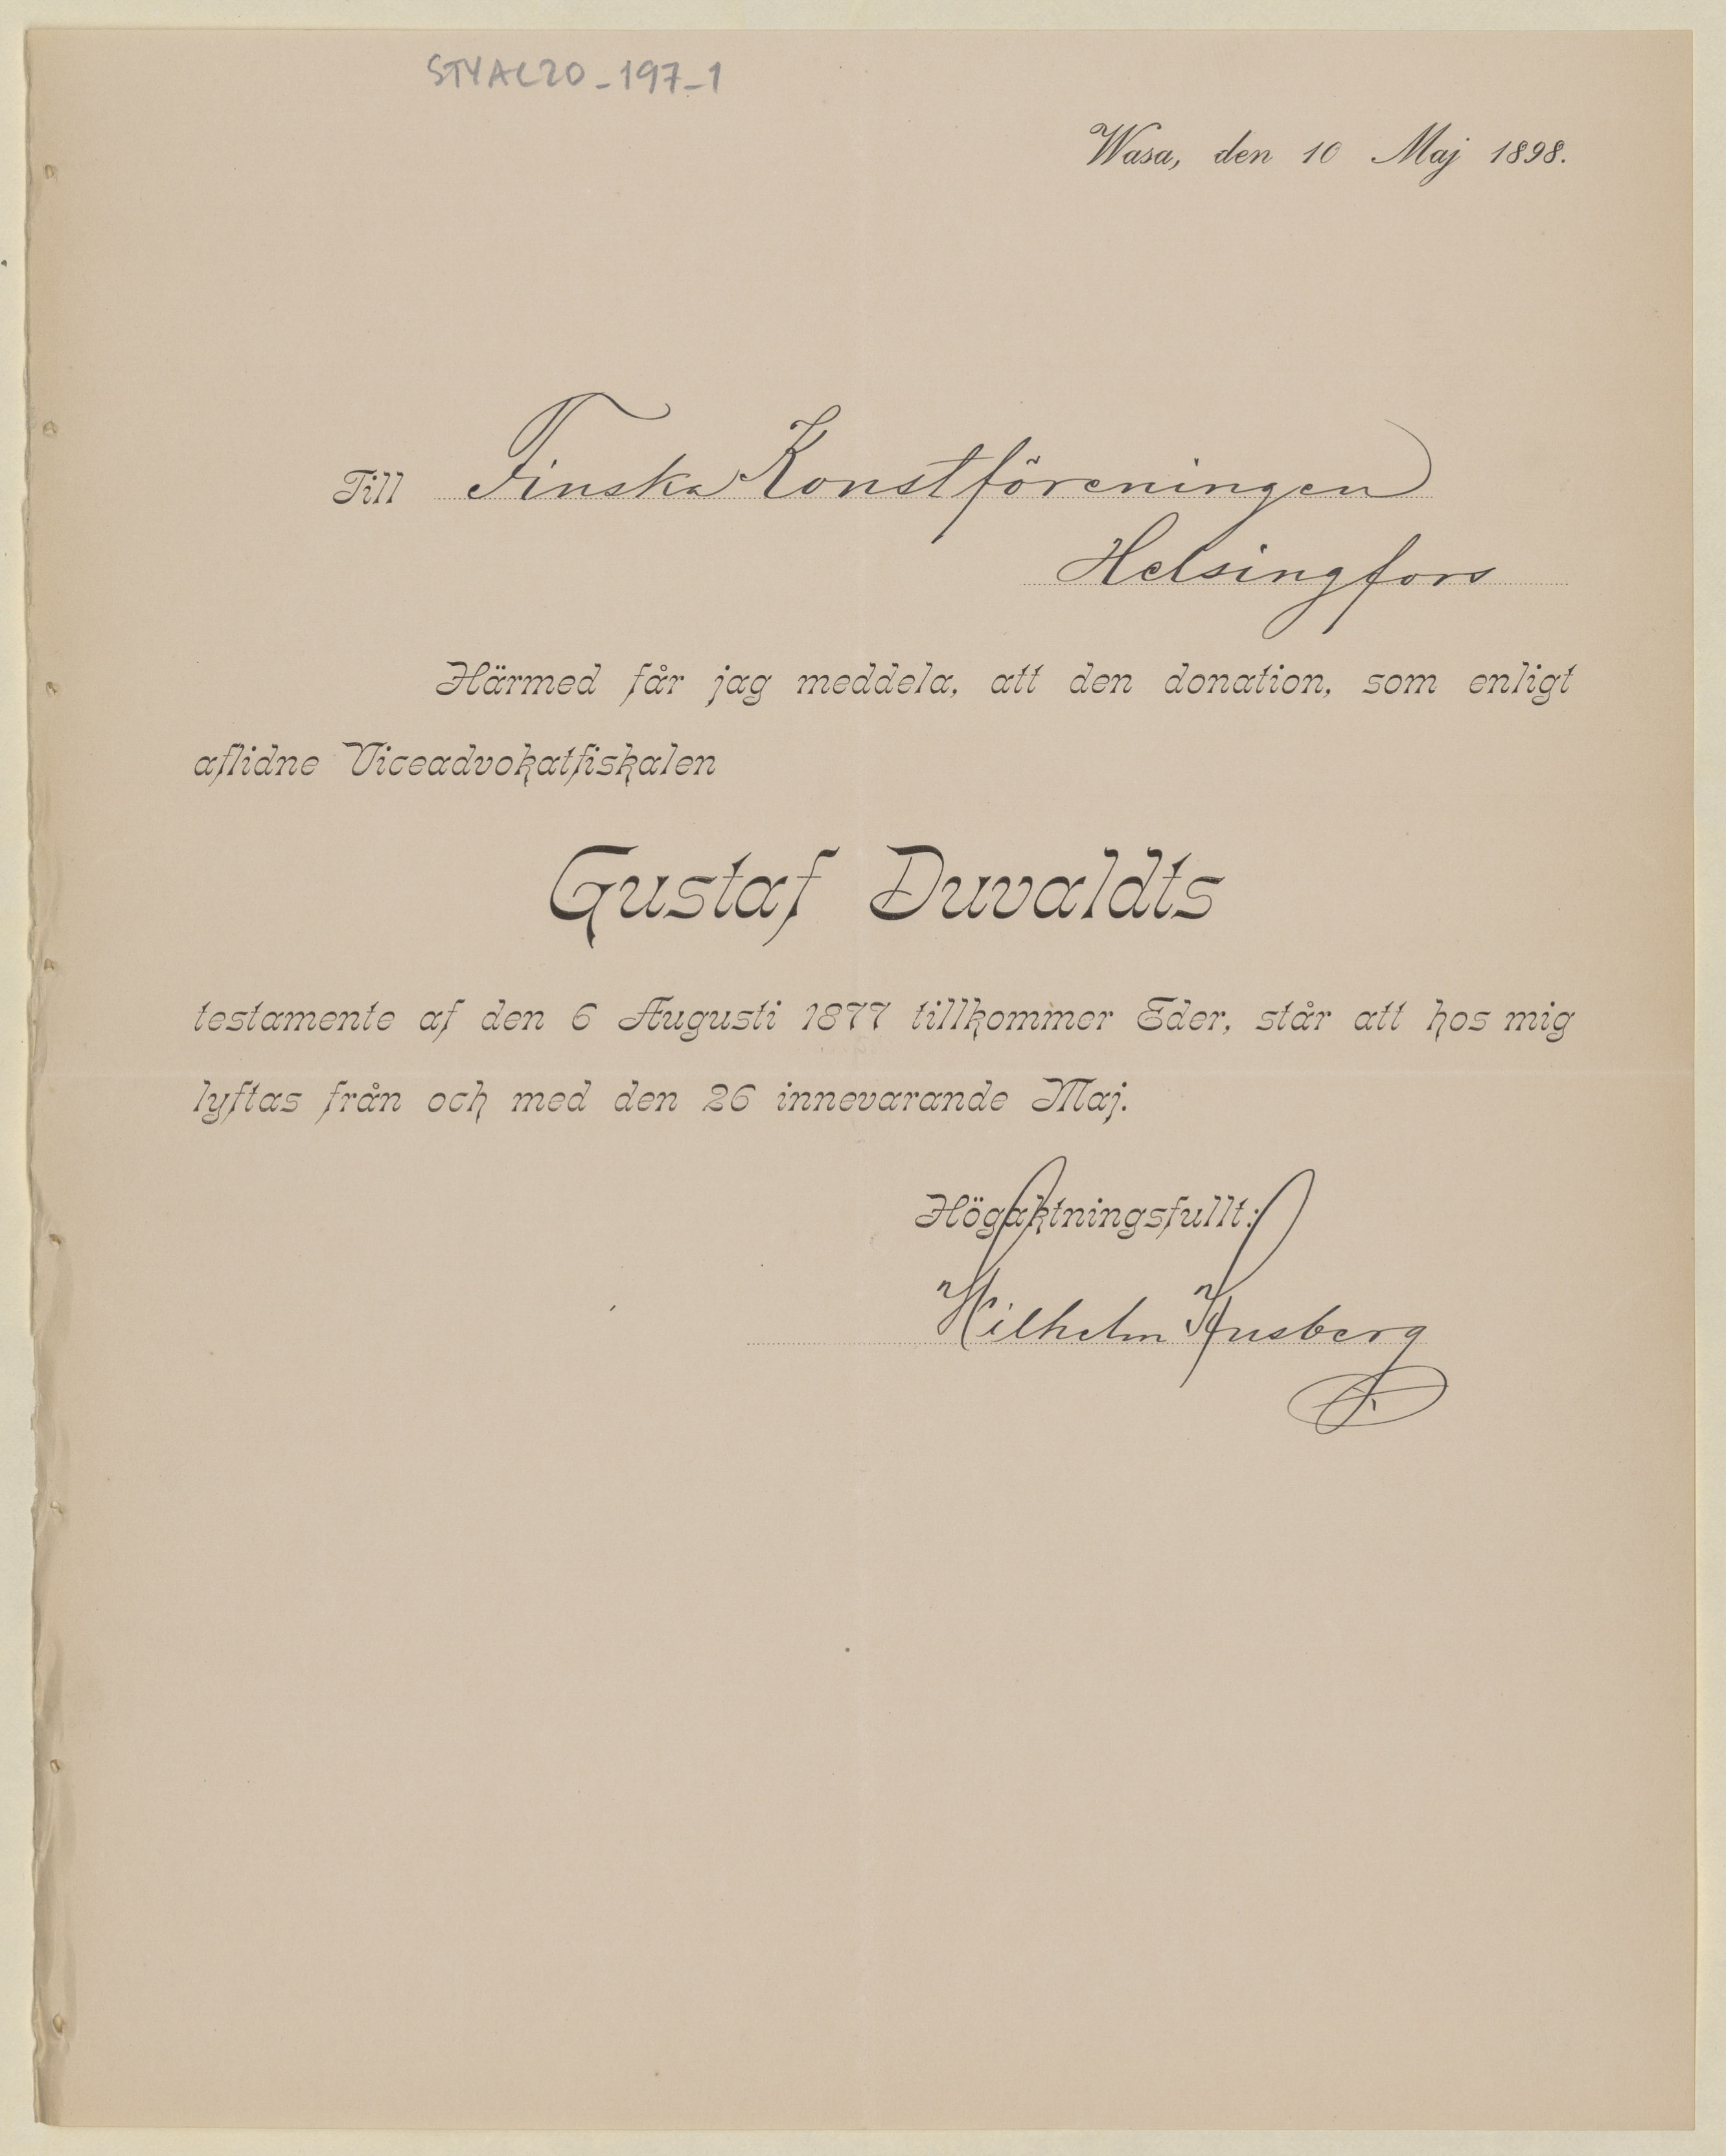 STYAL20_197_1
Wasa, den 10 Maj 1898.
Till Finska Konstföreningen
Helsingfors
Härmed får jag meddela, att den donation, som enligt
aflidne Viceadvokatfiskalen
Gustaf Duvaldts
testamente af den 6 Augusti 1877 tillkommer Eder, står att hos mig
lyftas från och med den 26 innevarande Maj.
Högaktningsfullt:
Wilhelm Husberg